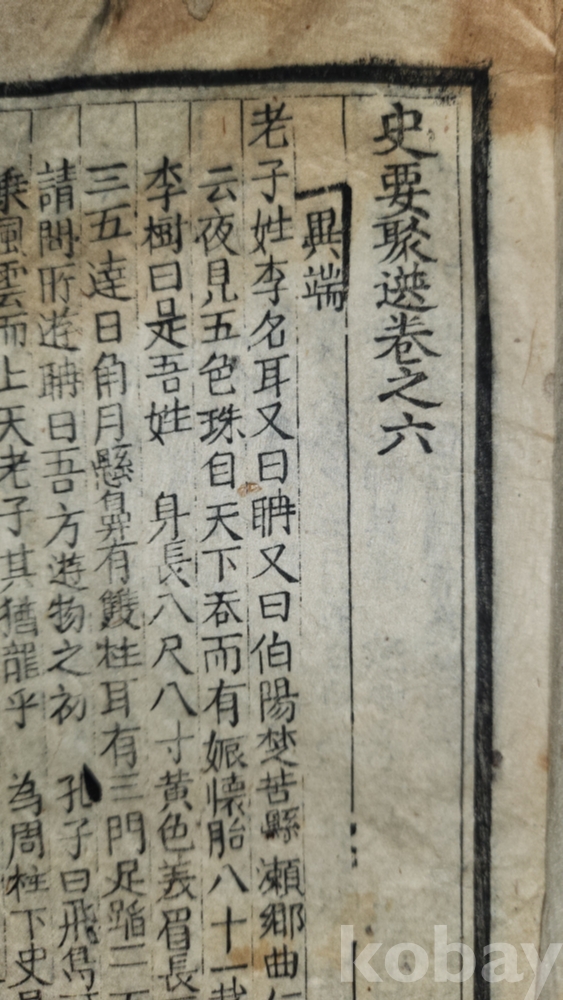 史要聚選卷之六
異端
老子姓李名耳又曰聃又曰伯陽楚苦縣瀨鄉曲仁
云夜見五色珠自天下吞而有娠懷胎八十一載
李樹曰是吾姓 身長八尺八寸黃色義眉長
三五達日角月懸鼻有雙柱耳有三門足蹈二五
請問所遊聃曰吾方遊物之初 孔子曰飛鳥
乗風雲而上天老子其猶龍乎 為周柱下史
kobay